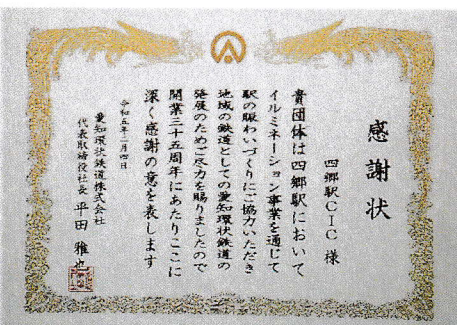 感謝状
四郷駅CIC 様
貴団体は四郷駅において
イルミネーション事業を通じて
駅の賑わいづくりにご協力いただき
地域の鉄道としての愛知環状鉄道の
発展のためご尽力を賜りましたので
開業三十五周年にあたりここに
深く感謝の意を表します
令和五年二月四日
愛知環状鉄道株式会社
代表取締役社長 平田 雅也